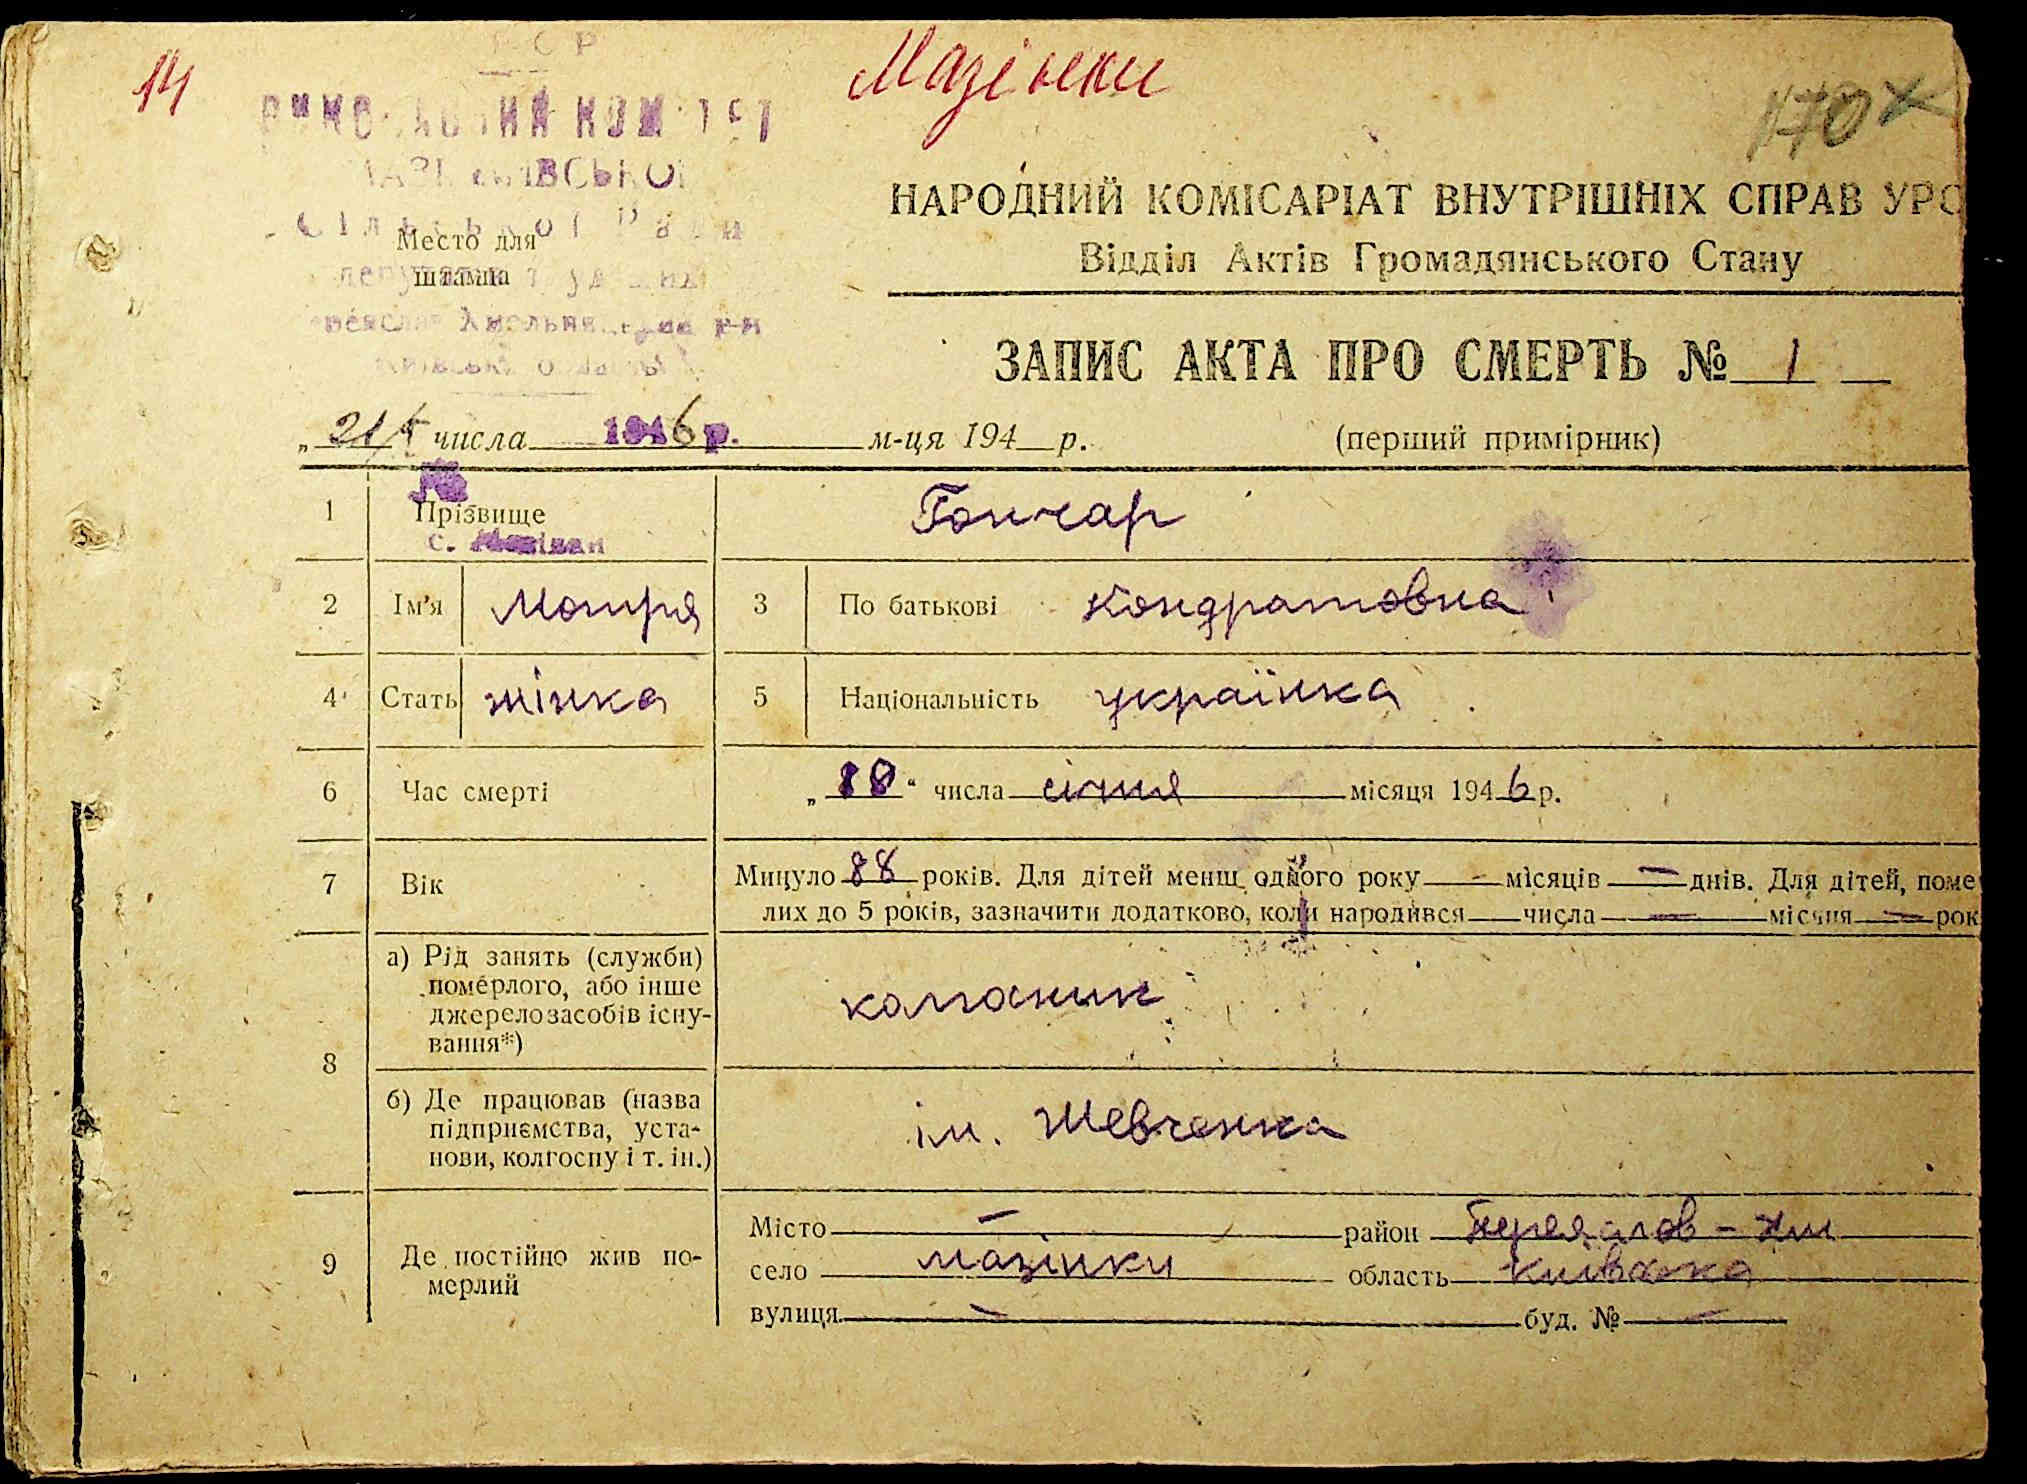 14
Мазінки
170
Сільської Ради
Место для
штампа
НАРОДНИЙ КОМІСАРІАТ ВНУТРІШНІХ СПРАВ УРС
Відділ Актів Громадянського Стану
ЗАПИС АКТА ПРО СМЕРТЬ № 1
„ 21/I числа 1946 р. м-ця 194 р. (перший примірник)
1 Прізвище Гончар
с.
2 Ім'я Мотря 3 По батькові Кондратовна
4 Стать жінка 5 Національність українка
6 Час смерті „ “ числа січня місяця 1946 р.
7 Вік Минуло 88 років. Для дітей менш одного року — місяців — днів. Для дітей, поме
лих до 5 років, зазначити додатково, коли народився числа — місяця — рок
8 а) Рід занять (служби)
померлого, або інше
джерело засобів існу-
вання*)
колгосник
б) Де працював (назва
підприємства, уста-
нови, колгоспу і т. ін.)
ім. Шевченка
9 Де постійно жив по-
мерлий
Місто — район Переяслов-Хм
село Мазінки область Київська
вулиця — буд. № —